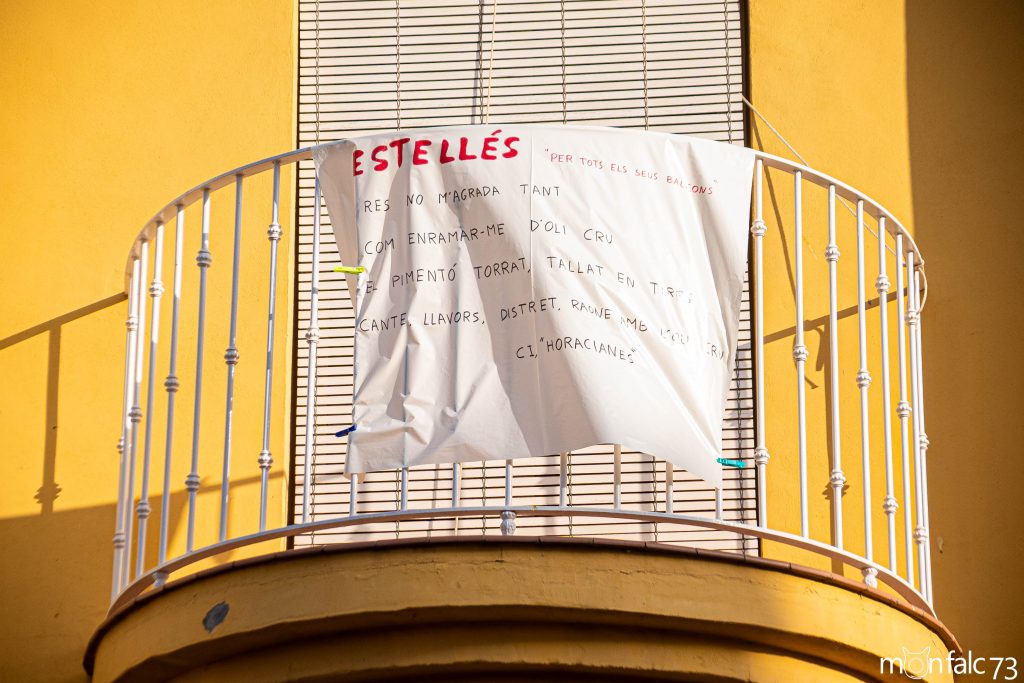 ESTELLÉS
"PER TOTS ELS SEUS BALCONS"
RES NO M'AGRADA TANT
COM ENRAMAR-ME D'OLI CRU
EL PIMENTÓ TORRAT, TALLAT EN TIRES
CANTE, LLAVORS, DISTRET, RAONE AMB L'OLI CRU
CI, "HORACIANES"
monfalc 73